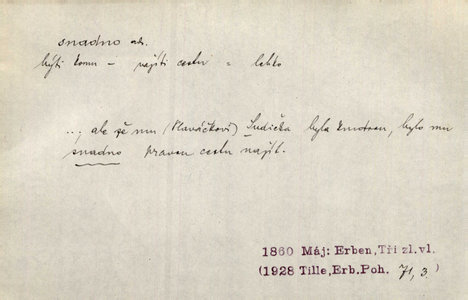 snadno adv.
býti komu – najíti cestu = lehko
..., ale že mu (Plaváčkovi) Sudička byla kmotrou, bylo mu
snadno pravou cestu najít.
1860 Máj: Erben, Tři zl. vl.
(1928 Tille, Erb. Poh. 71, 3.)